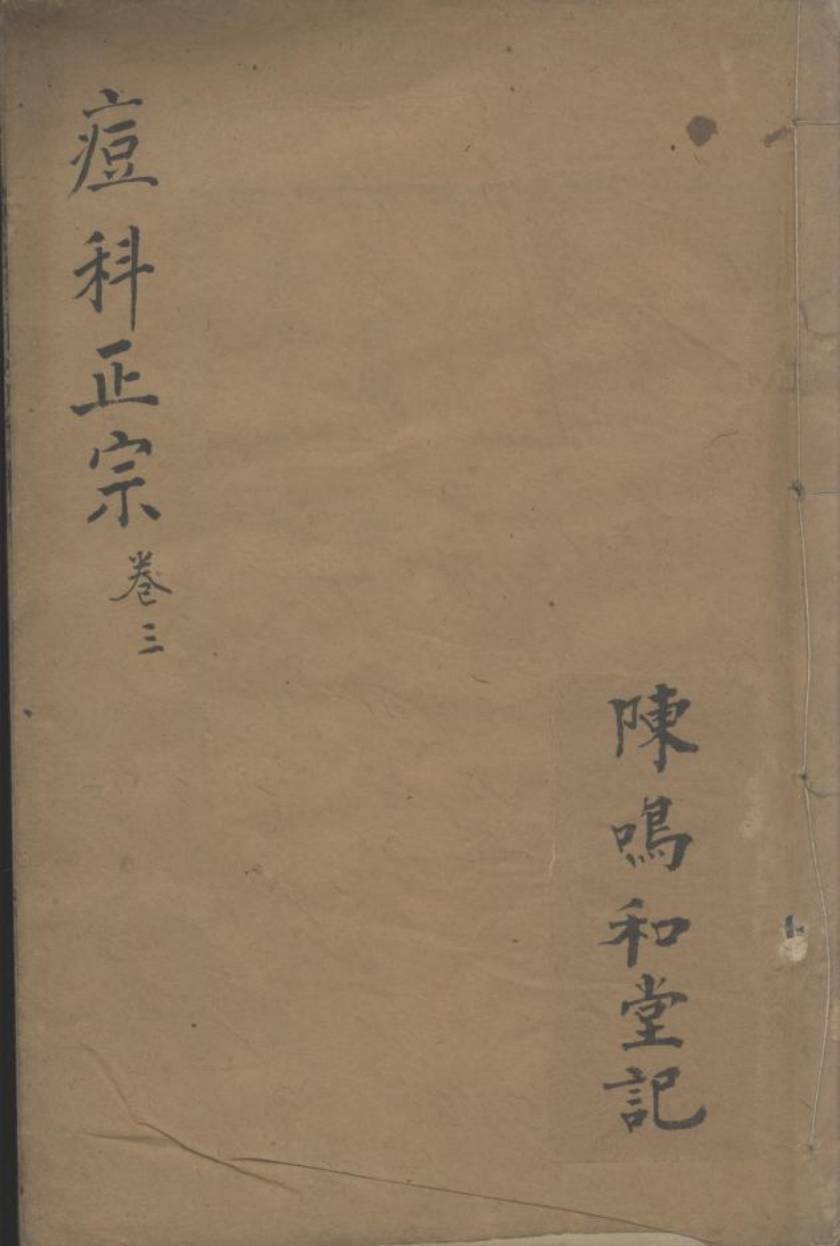 痘科正宗卷三
陳鳴和堂記